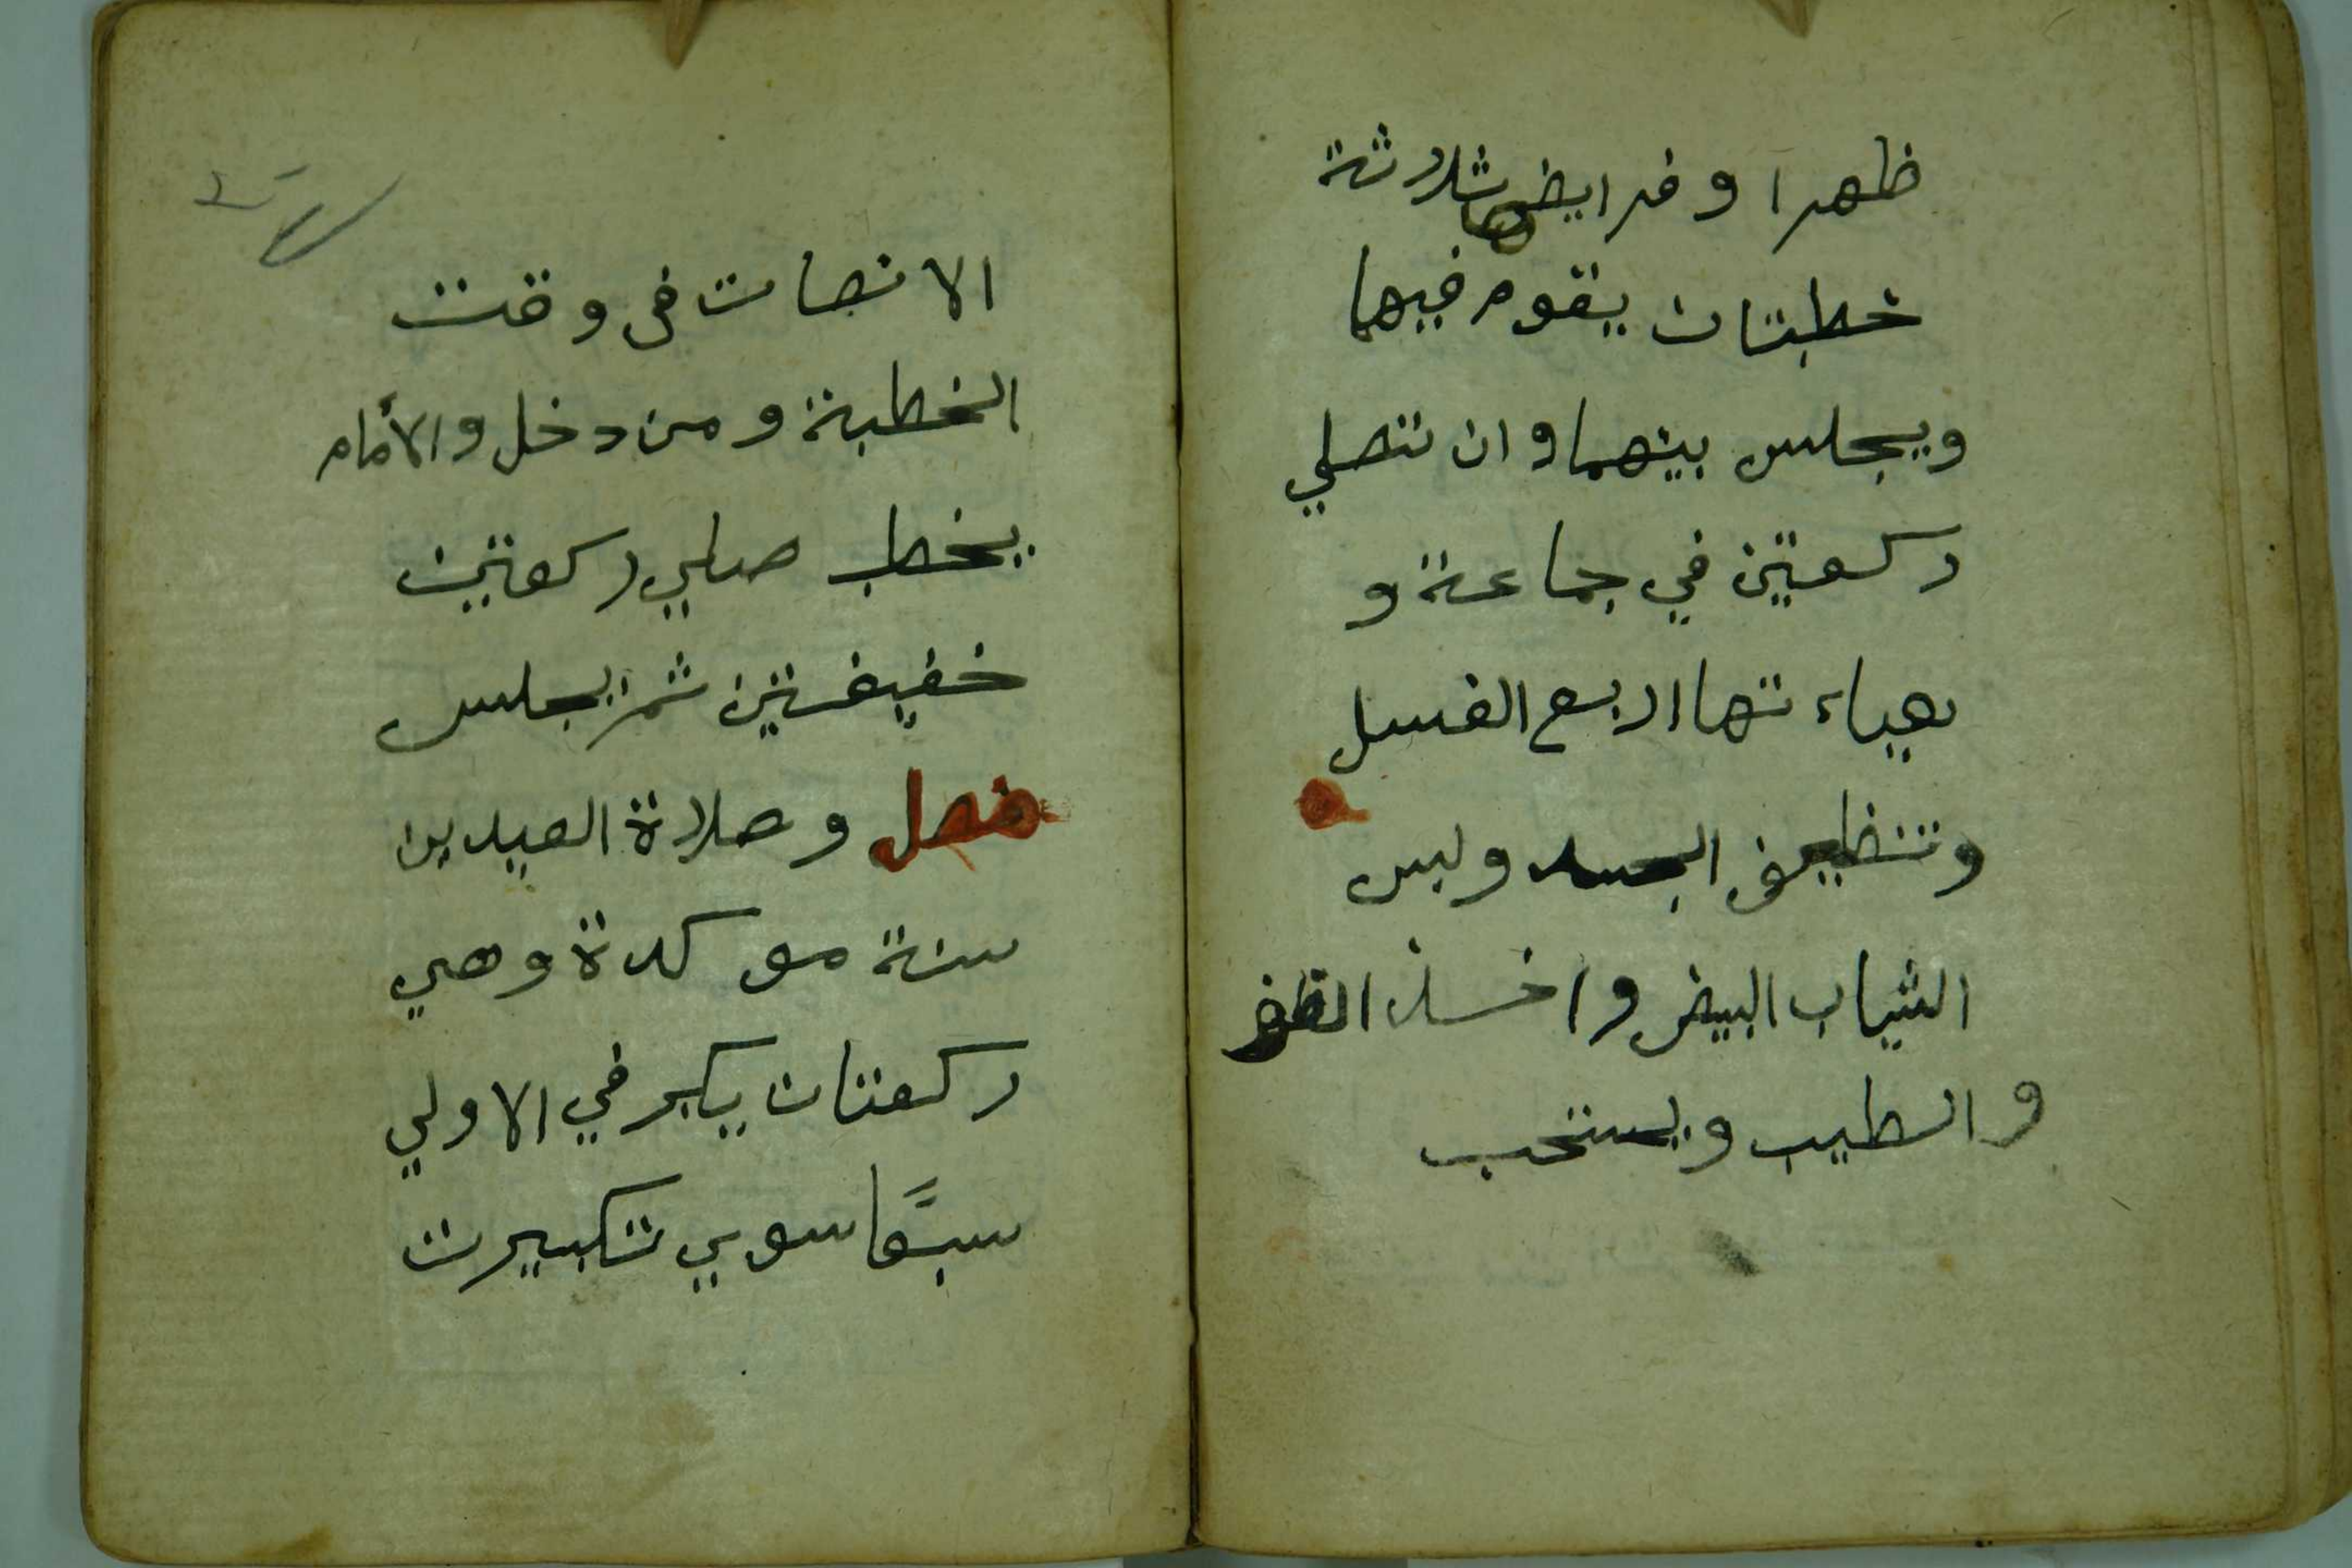 ظهرا وفرايضها ثلاثة
خطبتان يقوم فيهما
ويجلس بينهما وان تصلي
ركعتين في جماعة و
هياءتها اربع الغسل
وتنظيف الجسد ولبس
الثياب البيض واخذ الظفر
والطيب ويستحب
الانصات فى وقت
الخطبة ومن دخل والأمام
يخطب صلي ركعتين
خفيفتين ثم يجلس
فصل وصلاة العيدين
سنة موكدة وهي
ركعتان يكبر في الاولي
سبعًا سوي تكبيرت